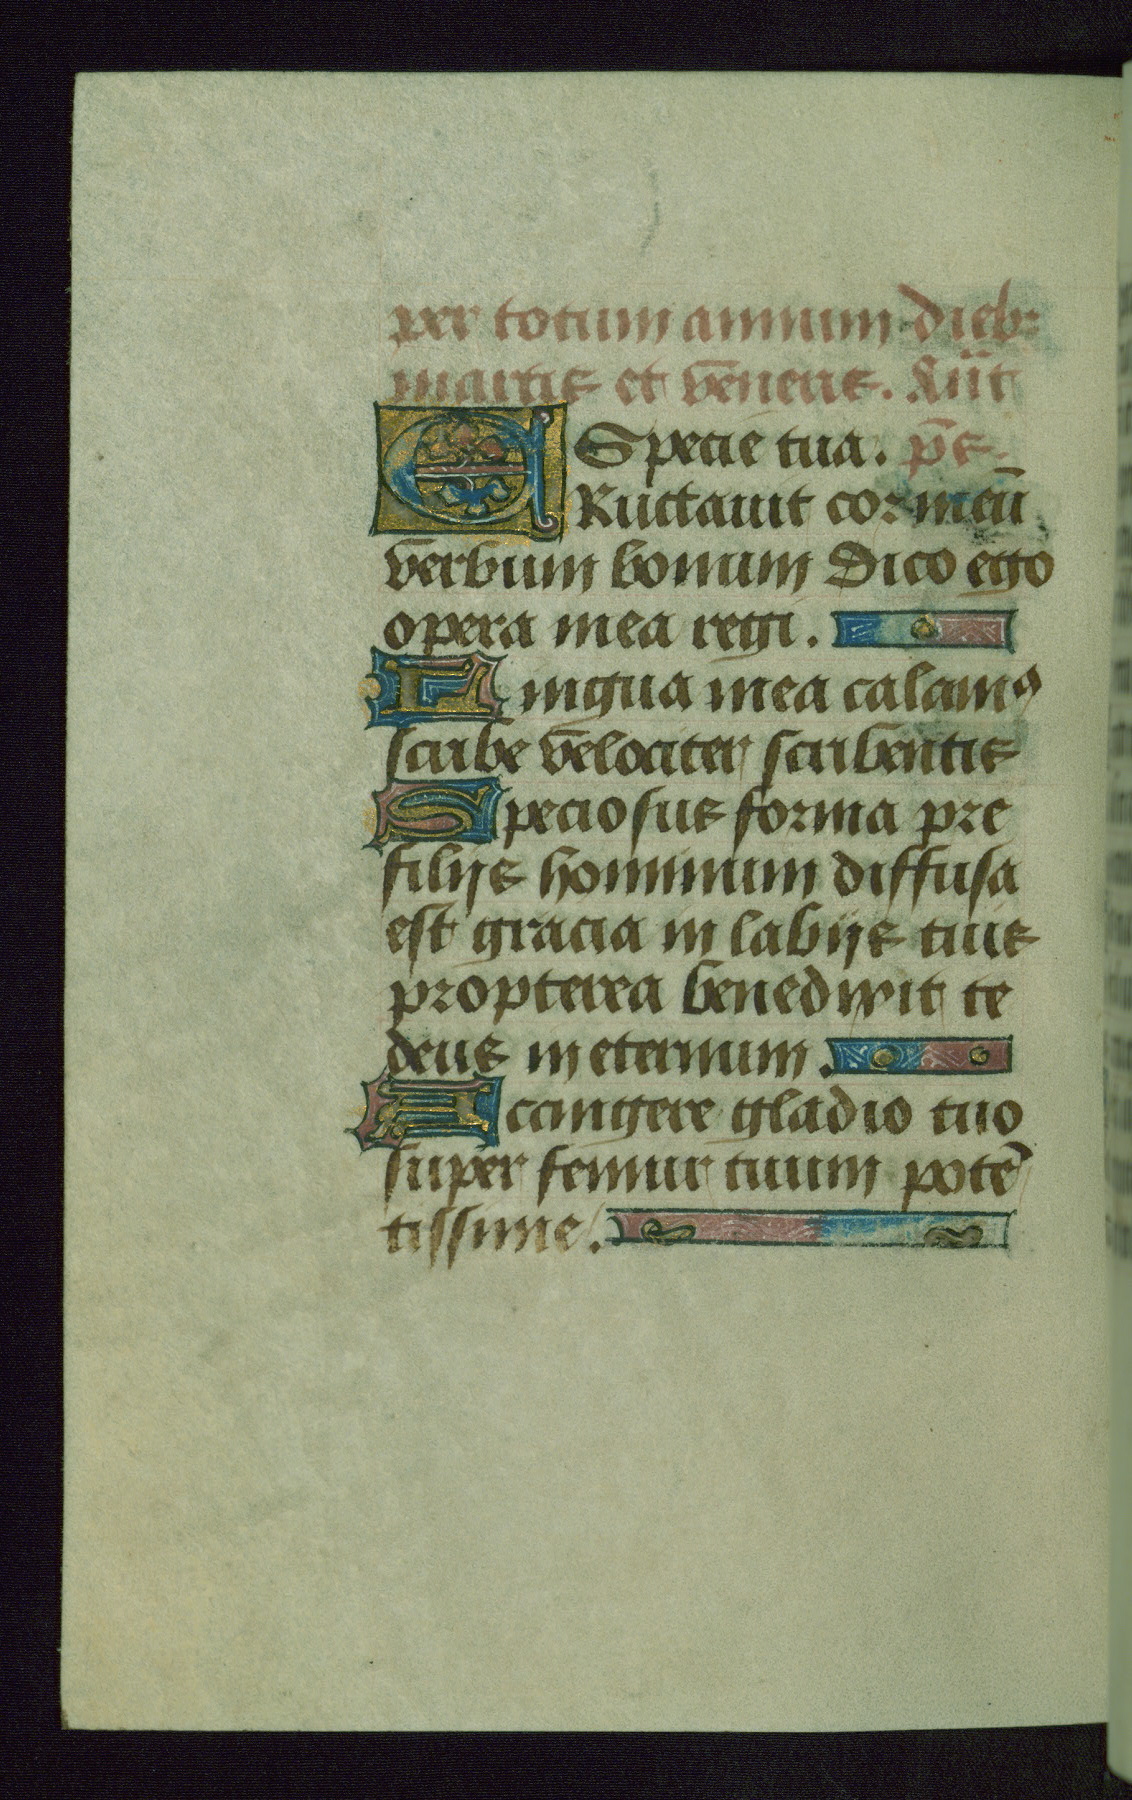 per totum annum dieb:
martis et veneris. Añt
Specie tua. p̄s.
ERuctauit cor meū
verbum bonum Dico ego
opera mea regi.
Lingua mea calamꝯ
scribe velociter scribentis
Speciosus forma pre
filijs hominum diffusa
est gracia in labijs tuis
propterea benedixit te
deus in eternum.
Accingere gladio tuo
super femur tuum potē
tissime.